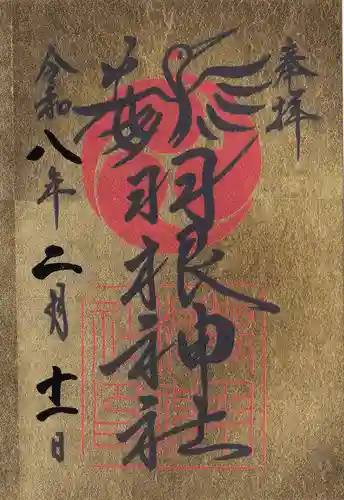 奉拝
鶴羽根神社
令和八年二月十一日